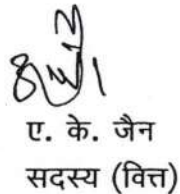 ए. के. जैन
सदस्य (वित्त)